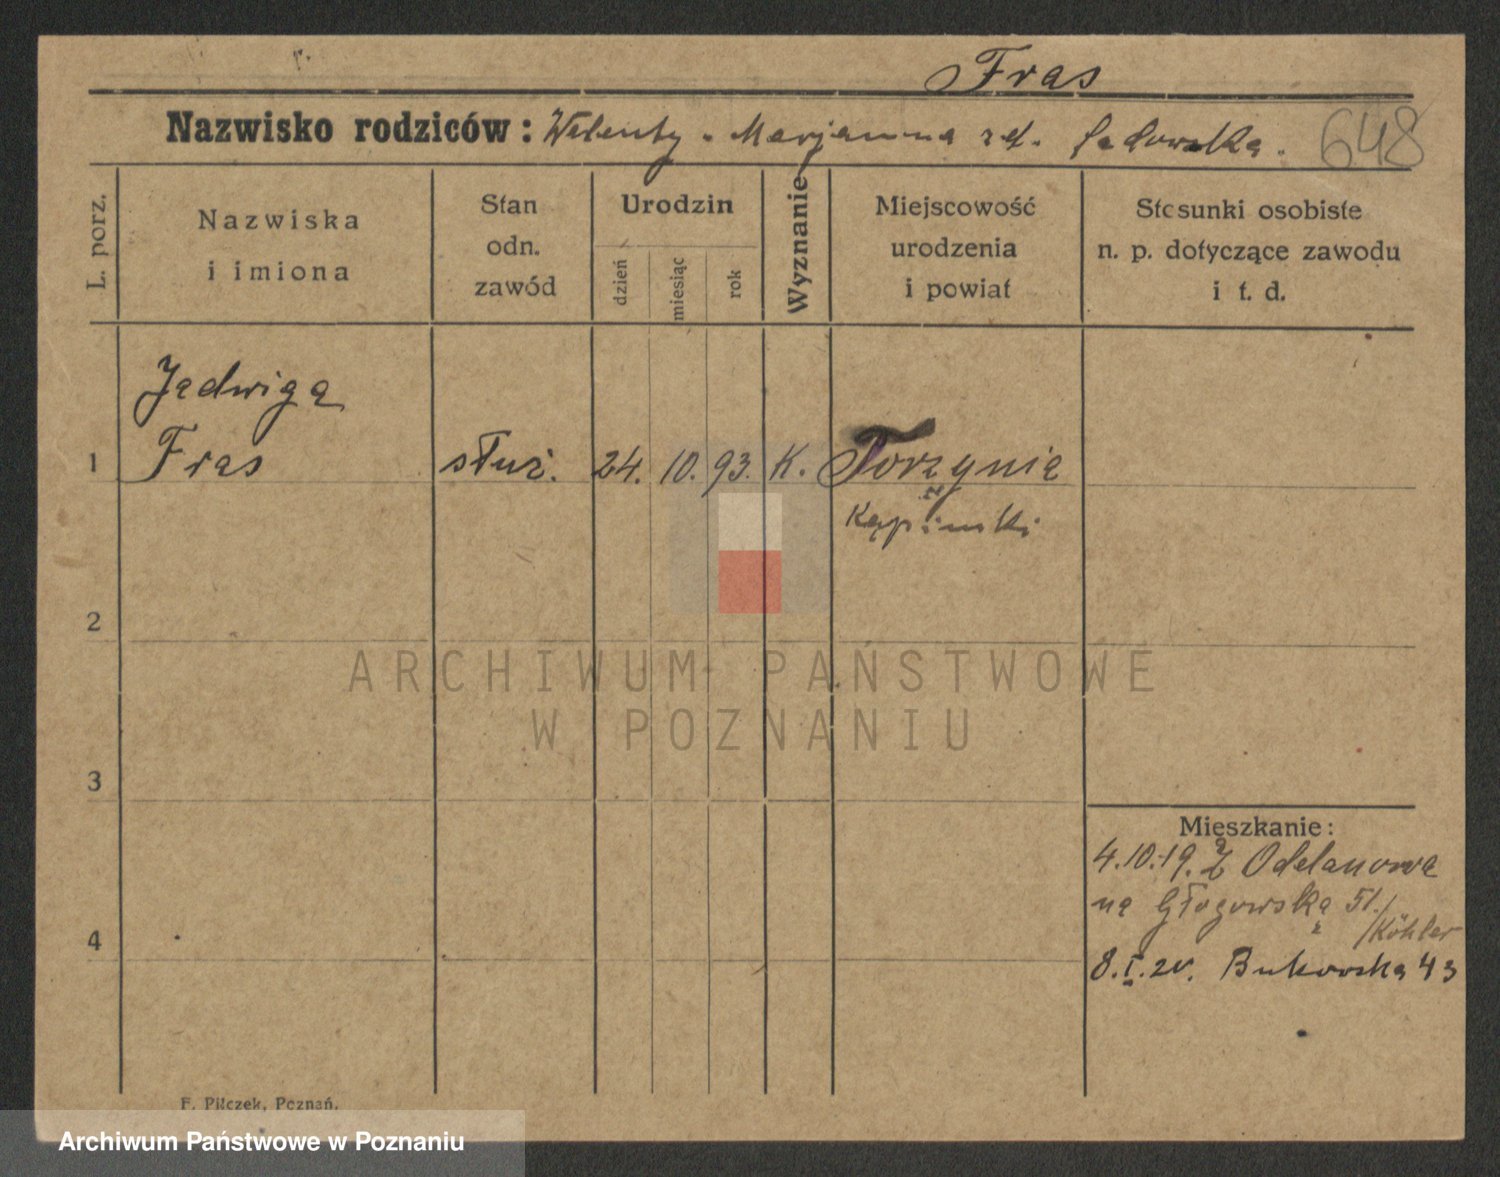 Fras
Nazwisko rodziców: Walenty - Marjanna zd. Sadowska. 648
L. porz.
Nazwiska
i imiona
Stan
odn.
zawód
Urodzin
dzień
miesiąc
rok
Wyznanie
Miejscowość
urodzenia
i powiat
Stosunki osobiste
n. p. dotyczące zawodu
i t. d.
Jadwiga
1 Fras służ. 24. 10. 93. K. Torzynia
Kępiński
2
ARCHIWUM PAŃSTWOWE
W POZNANIU
3
Mieszkanie:
4.10.19. Z Odolanowa
na Głogowska 51.
/Köhler
4
8.I.20. Bukowska 43
F. Pilczek, Poznań.
Archiwum Państwowe w Poznaniu